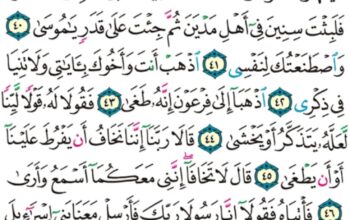 فَلَبِثْتَ سِنِينَ فِىٓ أَهْلِ مَدْيَنَ ثُمَّ جِئْتَ عَلَىٰ قَدَرٍ يَـٰمُوسَىٰ ٤٠
وَٱصْطَنَعْتُكَ لِنَفْسِى ٤١ ٱذْهَبْ أَنتَ وَأَخُوكَ بِـَٔايَـٰتِى وَلَا تَنِيَا
فِى ذِكْرِى ٤٢ ٱذْهَبَآ إِلَىٰ فِرْعَوْنَ إِنَّهُۥ طَغَىٰ ٤٣ فَقُولَا لَهُۥ قَوْلًا لَّيِّنًا
لَّعَلَّهُۥ يَتَذَكَّرُ أَوْ يَخْشَىٰ ٤٤ قَالَا رَبَّنَآ إِنَّنَا نَخَافُ أَن يَفْرُطَ عَلَيْنَآ
أَوْ أَن يَطْغَىٰ ٤٥ قَالَ لَا تَخَافَآ إِنَّنِى مَعَكُمَآ أَسْمَعُ وَأَرَىٰ
٤٦ فَأْتِيَاهُ فَقُولَآ إِنَّا رَسُولَا رَبِّكَ فَأَرْسِلْ مَعَنَا بَنِىٓ إِسْرَٰٓءِيلَ